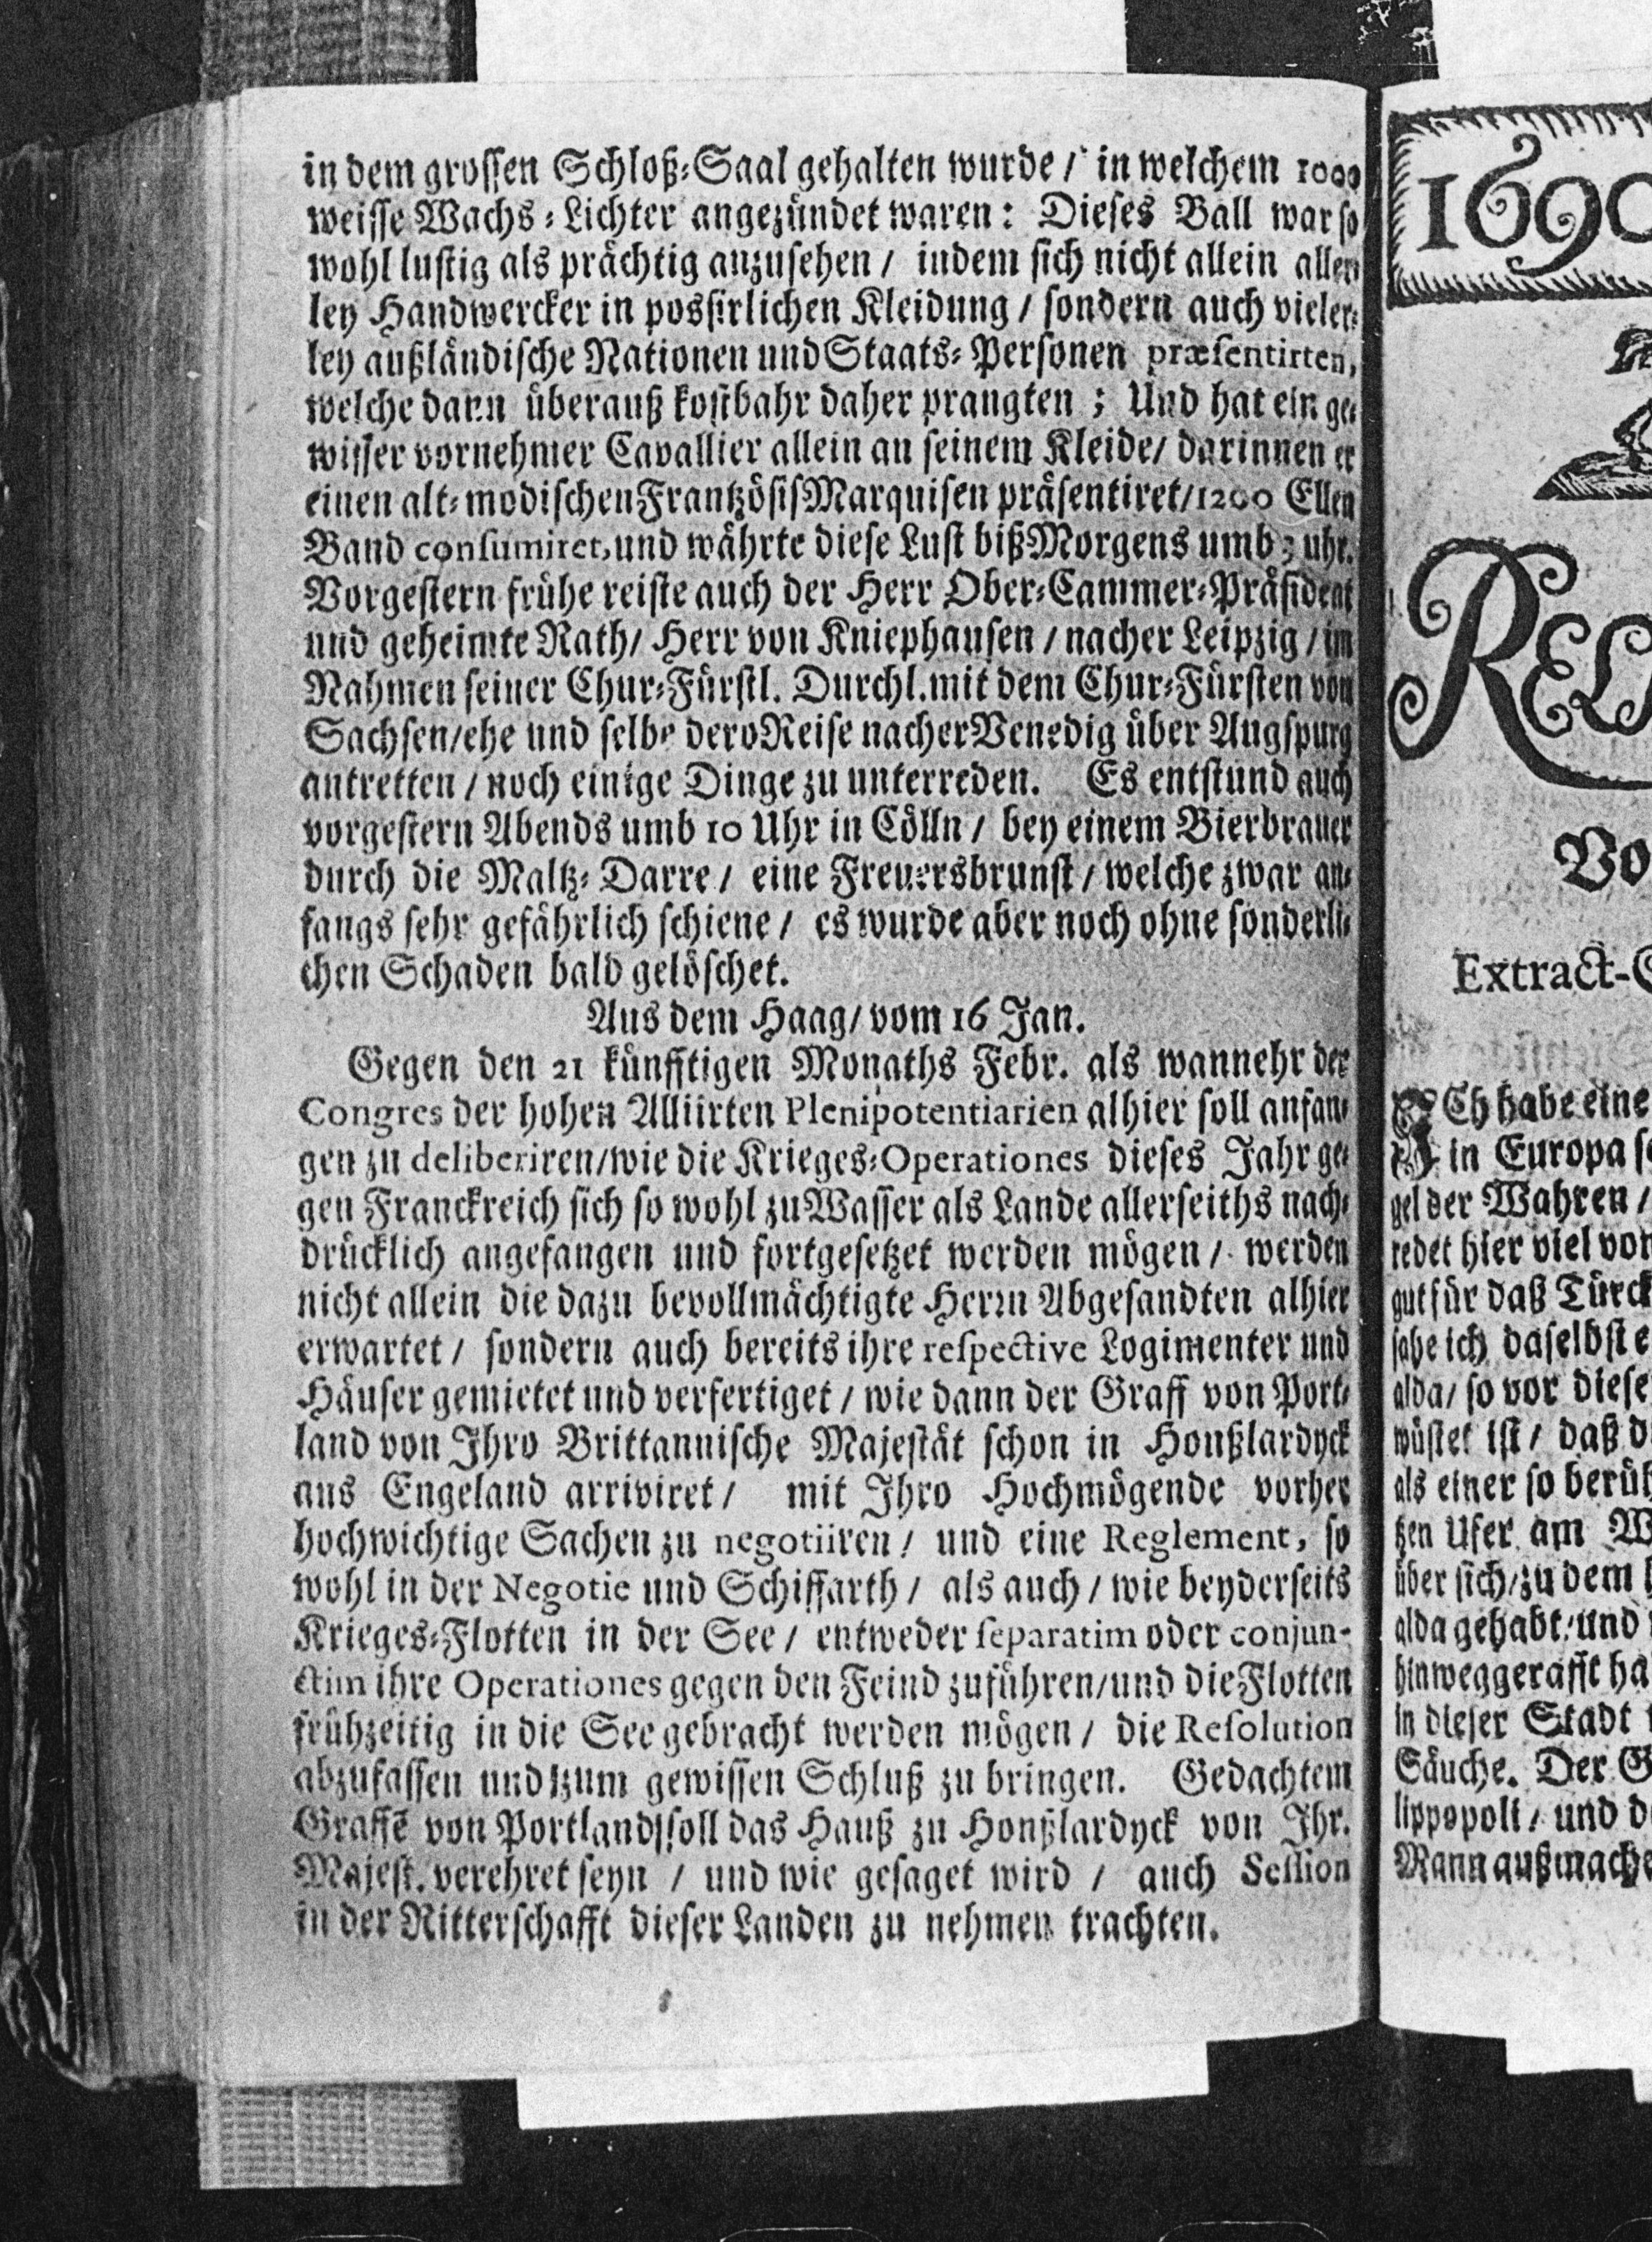 in dem grossen Schloß-Saal gehalten wurde / in welchem 1000
weisse Wachs-Lichter angezündet waren: Dieses Ball war so
wohl lustig als prächtig anzusehen / indem sich nicht allein aller-
ley Handwercker in possirlichen Kleidung / sondern auch vieler-
ley außländische Nationen und Staats-Personen præsentirten,
welche dann überauß kostbahr daher prangten; Und hat ein ge-
wisser vornehmer Cavallier allein an seinem Kleide / darinnen er
einen alt-modischen Frantzösis Marquisen präsentiret / 1200 Ellen
Band consumiret, und währte diese Lust biß Morgens umb 3 uhr.
Vorgestern frühe reiste auch der Herr Ober-Cammer-Präsident
und geheimte Rath / Herr von Kniephausen / nacher Leipzig / im
Nahmen seiner Chur-Fürstl. Durchl. mit dem Chur-Fürsten von
Sachsen / ehe und selbe dero Reise nacher Venedig über Augspurg
antretten / noch einige Dinge zu unterreden. Es entstund auch
vorgestern Abends umb 10 Uhr in Cölln / bey einem Bierbrauer
durch die Maltz-Darre / eine Freuersbrunst / welche zwar an-
fangs sehr gefährlich schiene / es wurde aber noch ohne sonderli-
chen Schaden bald gelöschet.
Aus dem Haag / vom 16 Jan.
Gegen den 21 künfftigen Monaths Febr. als wannehr der
Congres der hohen Alliirten Plenipotentiarien alhier soll anfan-
gen zu deliberiren / wie die Krieges-Operationes dieses Jahr ge-
gen Franckreich sich so wohl zu Wasser als Lande allerseiths nach-
drücklich angefangen und fortgesetzet werden mögen / werden
nicht allein die dazu bevollmächtigte Herrn Abgesandten alhier
erwartet / sondern auch bereits ihre respective Logimenter und
Häuser gemietet und verfertiget / wie dann der Graff von Port-
land von Ihro Brittannische Majestät schon in Honßlardyck
aus Engeland arriviret / mit Ihro Hochmögende vorher
hochwichtige Sachen zu negotiiren / und eine Reglement, so
wohl in der Negotie und Schiffarth / als auch / wie beyderseits
Krieges-Flotten in der See / entweder separatim oder conjun-
ctim ihre Operationes gegen den Feind zuführen / und die Flotten
frühzeitig in die See gebracht werden mögen / die Resolution
abzufassen und zum gewissen Schluß zu bringen. Gedachtem
Graffē von Portland soll das Hauß zu Honßlardyck von Ihr.
Majest. verehret seyn / und wie gesaget wird / auch Session
in der Ritterschafft dieser Landen zu nehmen trachten.
1690
REL
Vo
Extract-
ICh habe eine
in Europa
gel der Wahren /
redet hier viel von
gut für daß Türck
sahe ich daselbst
alda / so vor diese
wüstet ist / daß
als einer so berüh
tzen Ufer am
über sich / zu dem
alda gehabt / und
hinweggerafft ha
in dieser Stadt
Säuche. Der
lippopoli / und
Mann außmache